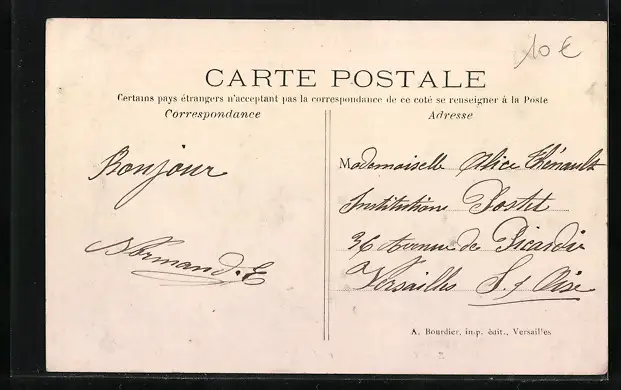 10 €
CARTE POSTALE
Certains pays étrangers n'acceptant pas la correspondance de ce coté se renseigner à la Poste
Correspondance
Adresse
Bonjour
Normand. E
Mademoiselle Alice Thénault
Institution
36 Avenue de Picardie
Versailles S. & Oise
A. Bourdier, imp. édit., Versailles